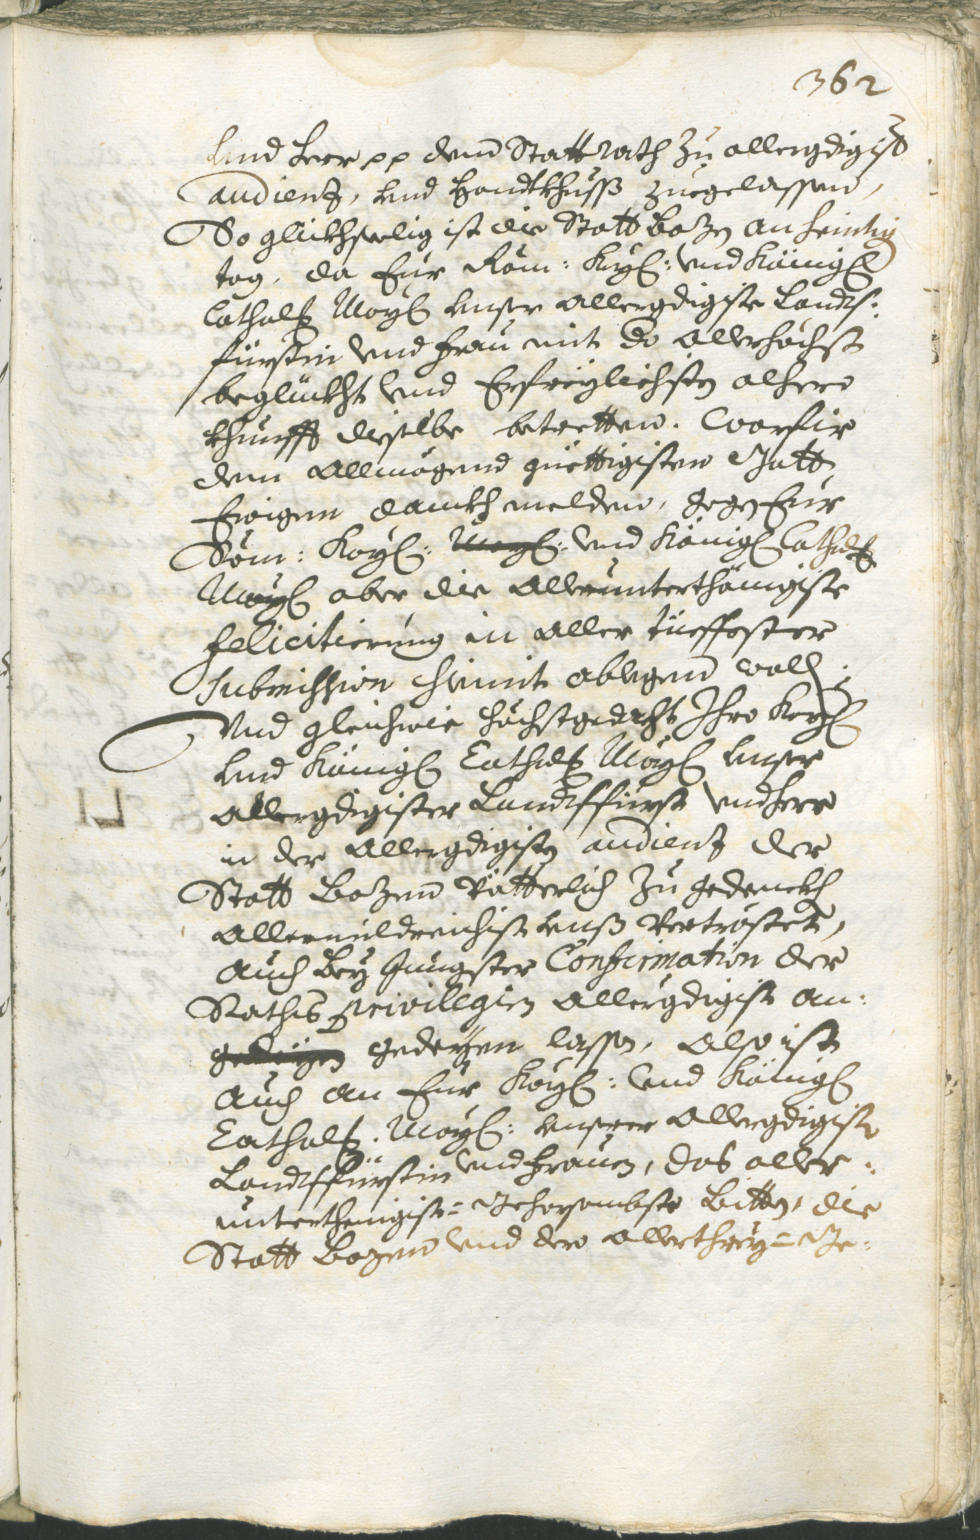 362
und herr pp dem Statt rath zu allergdigist
audientz, und Handtkhuss zuegelassen,
So glickhselig ist die Statt Bozen an heintig
tag, da Eur Röm: Kay: und Königl
Catholl May unser allergdigiste Landts:
fürstin und Frau mit do allerhöchst
beglückht und Erfreylichisten alhero
khunfft dieselbe betretten. Warfür
dem Allmögend güettigisten Gott
Ewigen danckh melden, gegen Eur
Röm: Kay: May: und Königl Catholl
May aber die allerunterthänigiste
felicitierung in aller tüeffester
submission hiemit ablegen wollen;
Und gleichwie höchstgedacht Ihro Kay
und Königl Catholl May unser
allergdigister Landtsfürst und herr
in der allergdigisten audientz der
Statt Bozen Vätterlich zu gedenckhen
allermildreichist unss vertröstet,
auch bey Jüngster Confirmation der
Raths privillegien allergdigist an:
gedeyen gedeyen lassen, also ist
auch an Eur Kay: und Königl
Catholl. May: unserer allergdigisten
Landtsfürstin und Frauen, das aller:
unterthenigist= gehorsambste bitten, die
Statt Bozen und dero allerthreu= Ge: